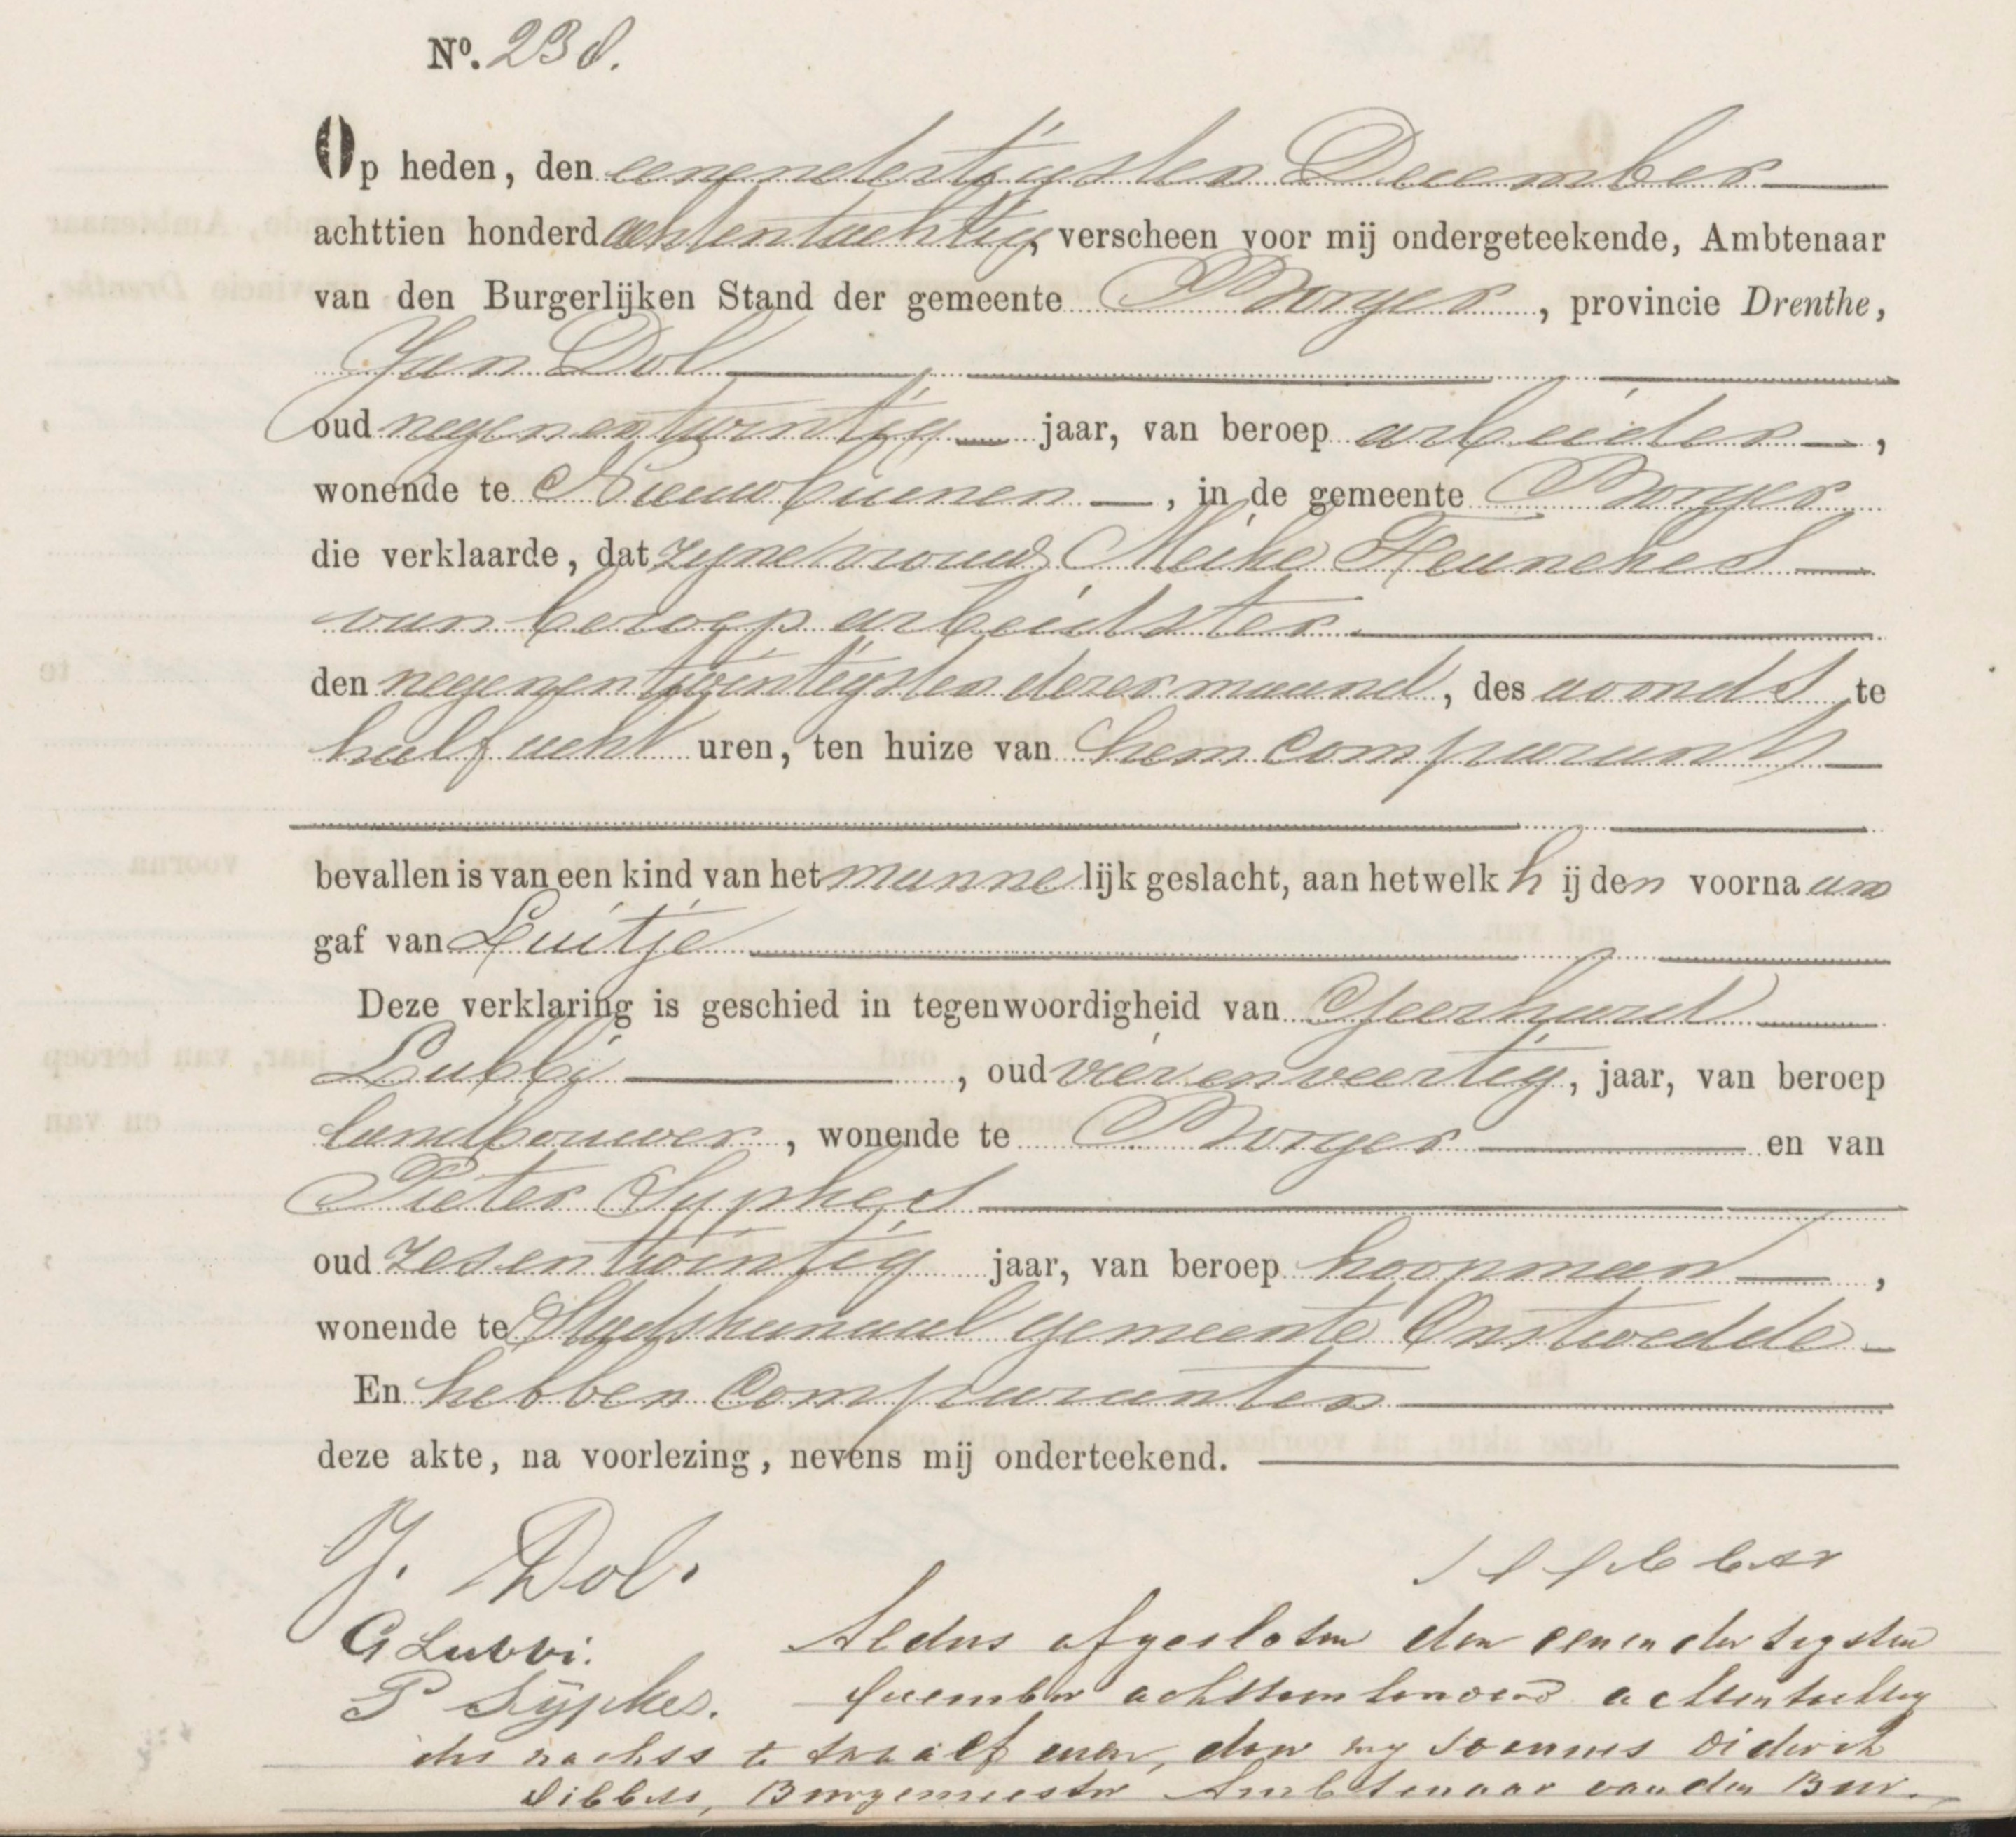 No. 238.
Op heden, den eenendertigsten December
achttien honderd achtentachtig, verscheen voor mij ondergeteekende, Ambtenaar
van den Burgerlijken Stand der gemeente Borger, provincie Drenthe,
Jan Dol
oud negenentwintig jaar, van beroep arbeider,
wonende te Nieuwbuinen, in de gemeente Borger
die verklaarde, dat zijne vrouw Meike Tennekes
van beroep arbeidster
den negenentwintigsten dezer maand, des avonds te
half acht uren, ten huize van hem comparant
bevallen is van een kind van het mannelijk geslacht, aan hetwelk hij den voornaam
gaf van Luitje
Deze verklaring is geschied in tegenwoordigheid van Geerhard
Lubbi, oud vierenveertig, jaar, van beroep
landbouwer, wonende te Borger en van
Pieter Sypkes
oud zesentwintig jaar, van beroep koopman,
wonende te Stadskanaal gemeente Onstwedde
En hebben comparanten
deze akte, na voorlezing, nevens mij onderteekend.
J. Dol.
G Lubbi.
Aldus afgesloten den eenendertigsten
P Sijpkes.
december achttienhonderd achtentachtig
des nachts te twaalf uren, door mij Joannes Diderik
Dibbits, Burgemeester Ambtenaar van den Bur.